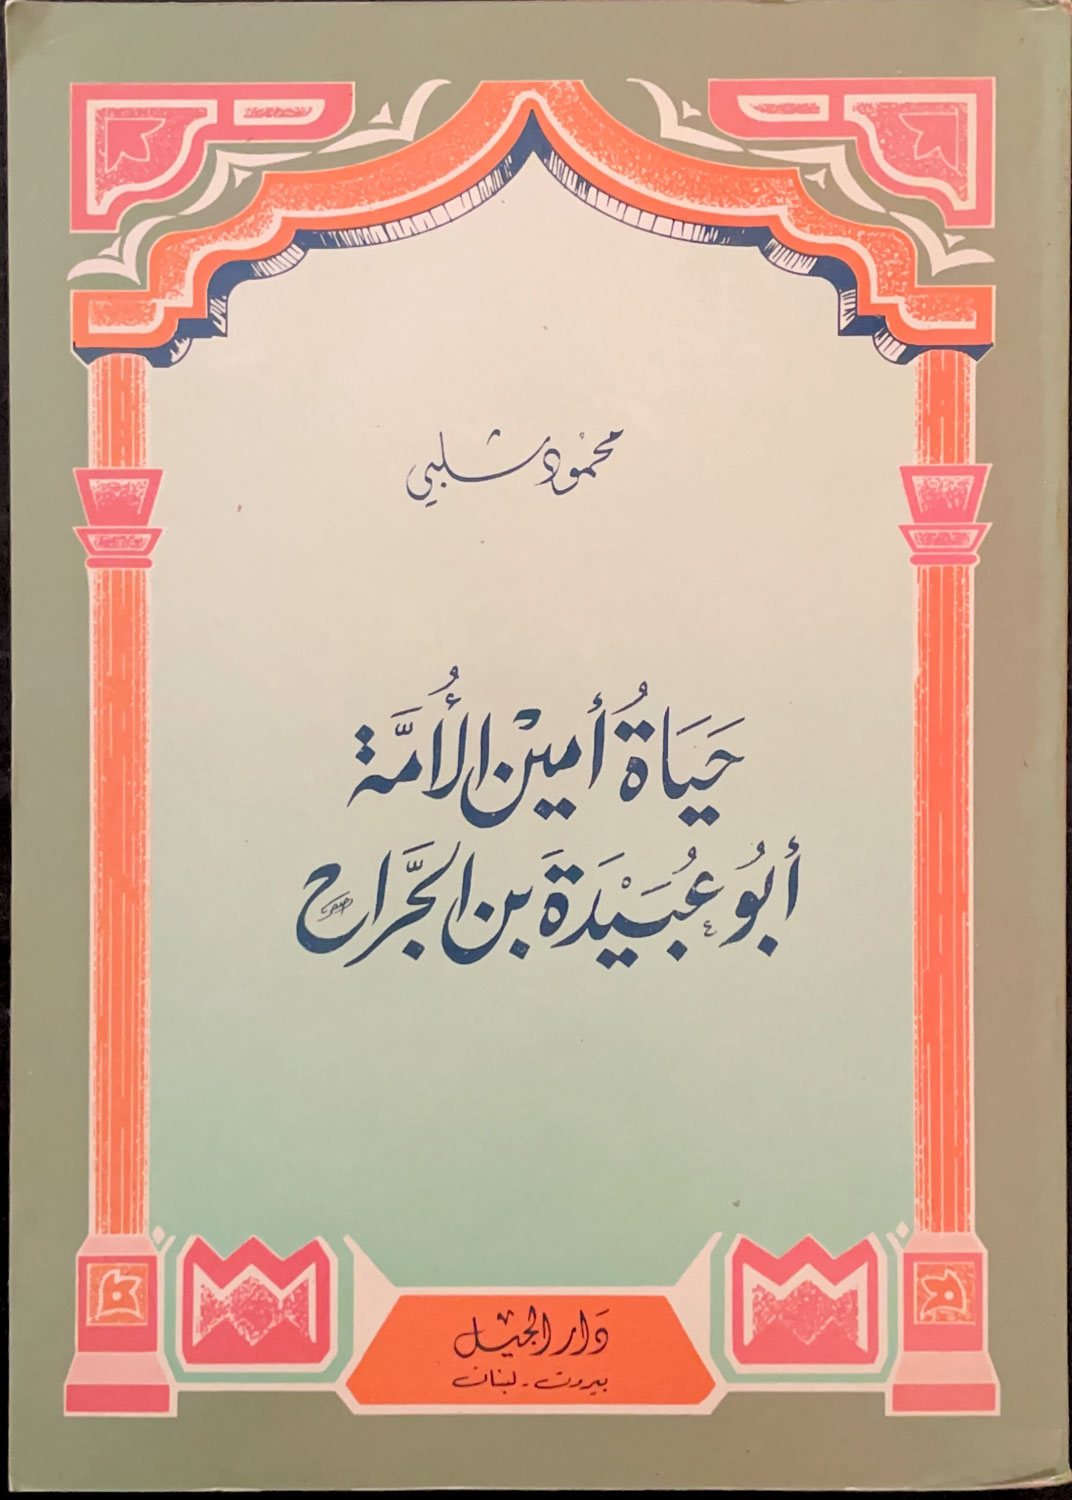 محمود شلبي
حَيَاةُ أمينْ الأُمَّة
أبُو عُبَيْدَةَ بن الجَرَّاح
دَار الجيْل
بيروت - لبنان